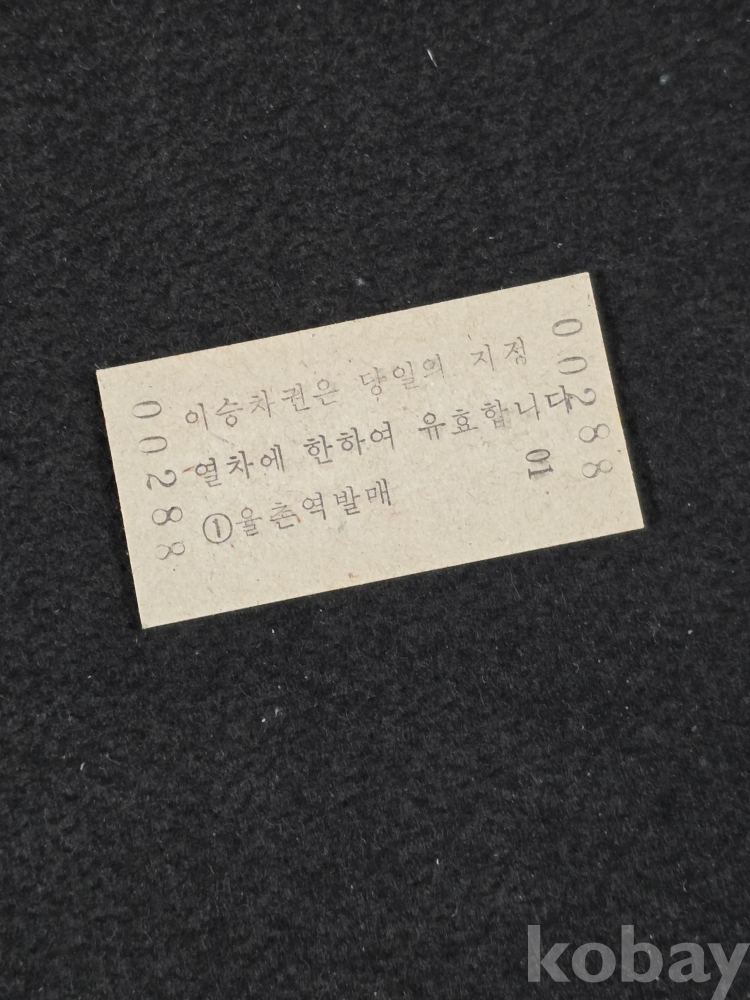 00288
이승차권은 당일의 지정
열차에 한하여 유효합니다
①율촌역발매
01
00288
kobay